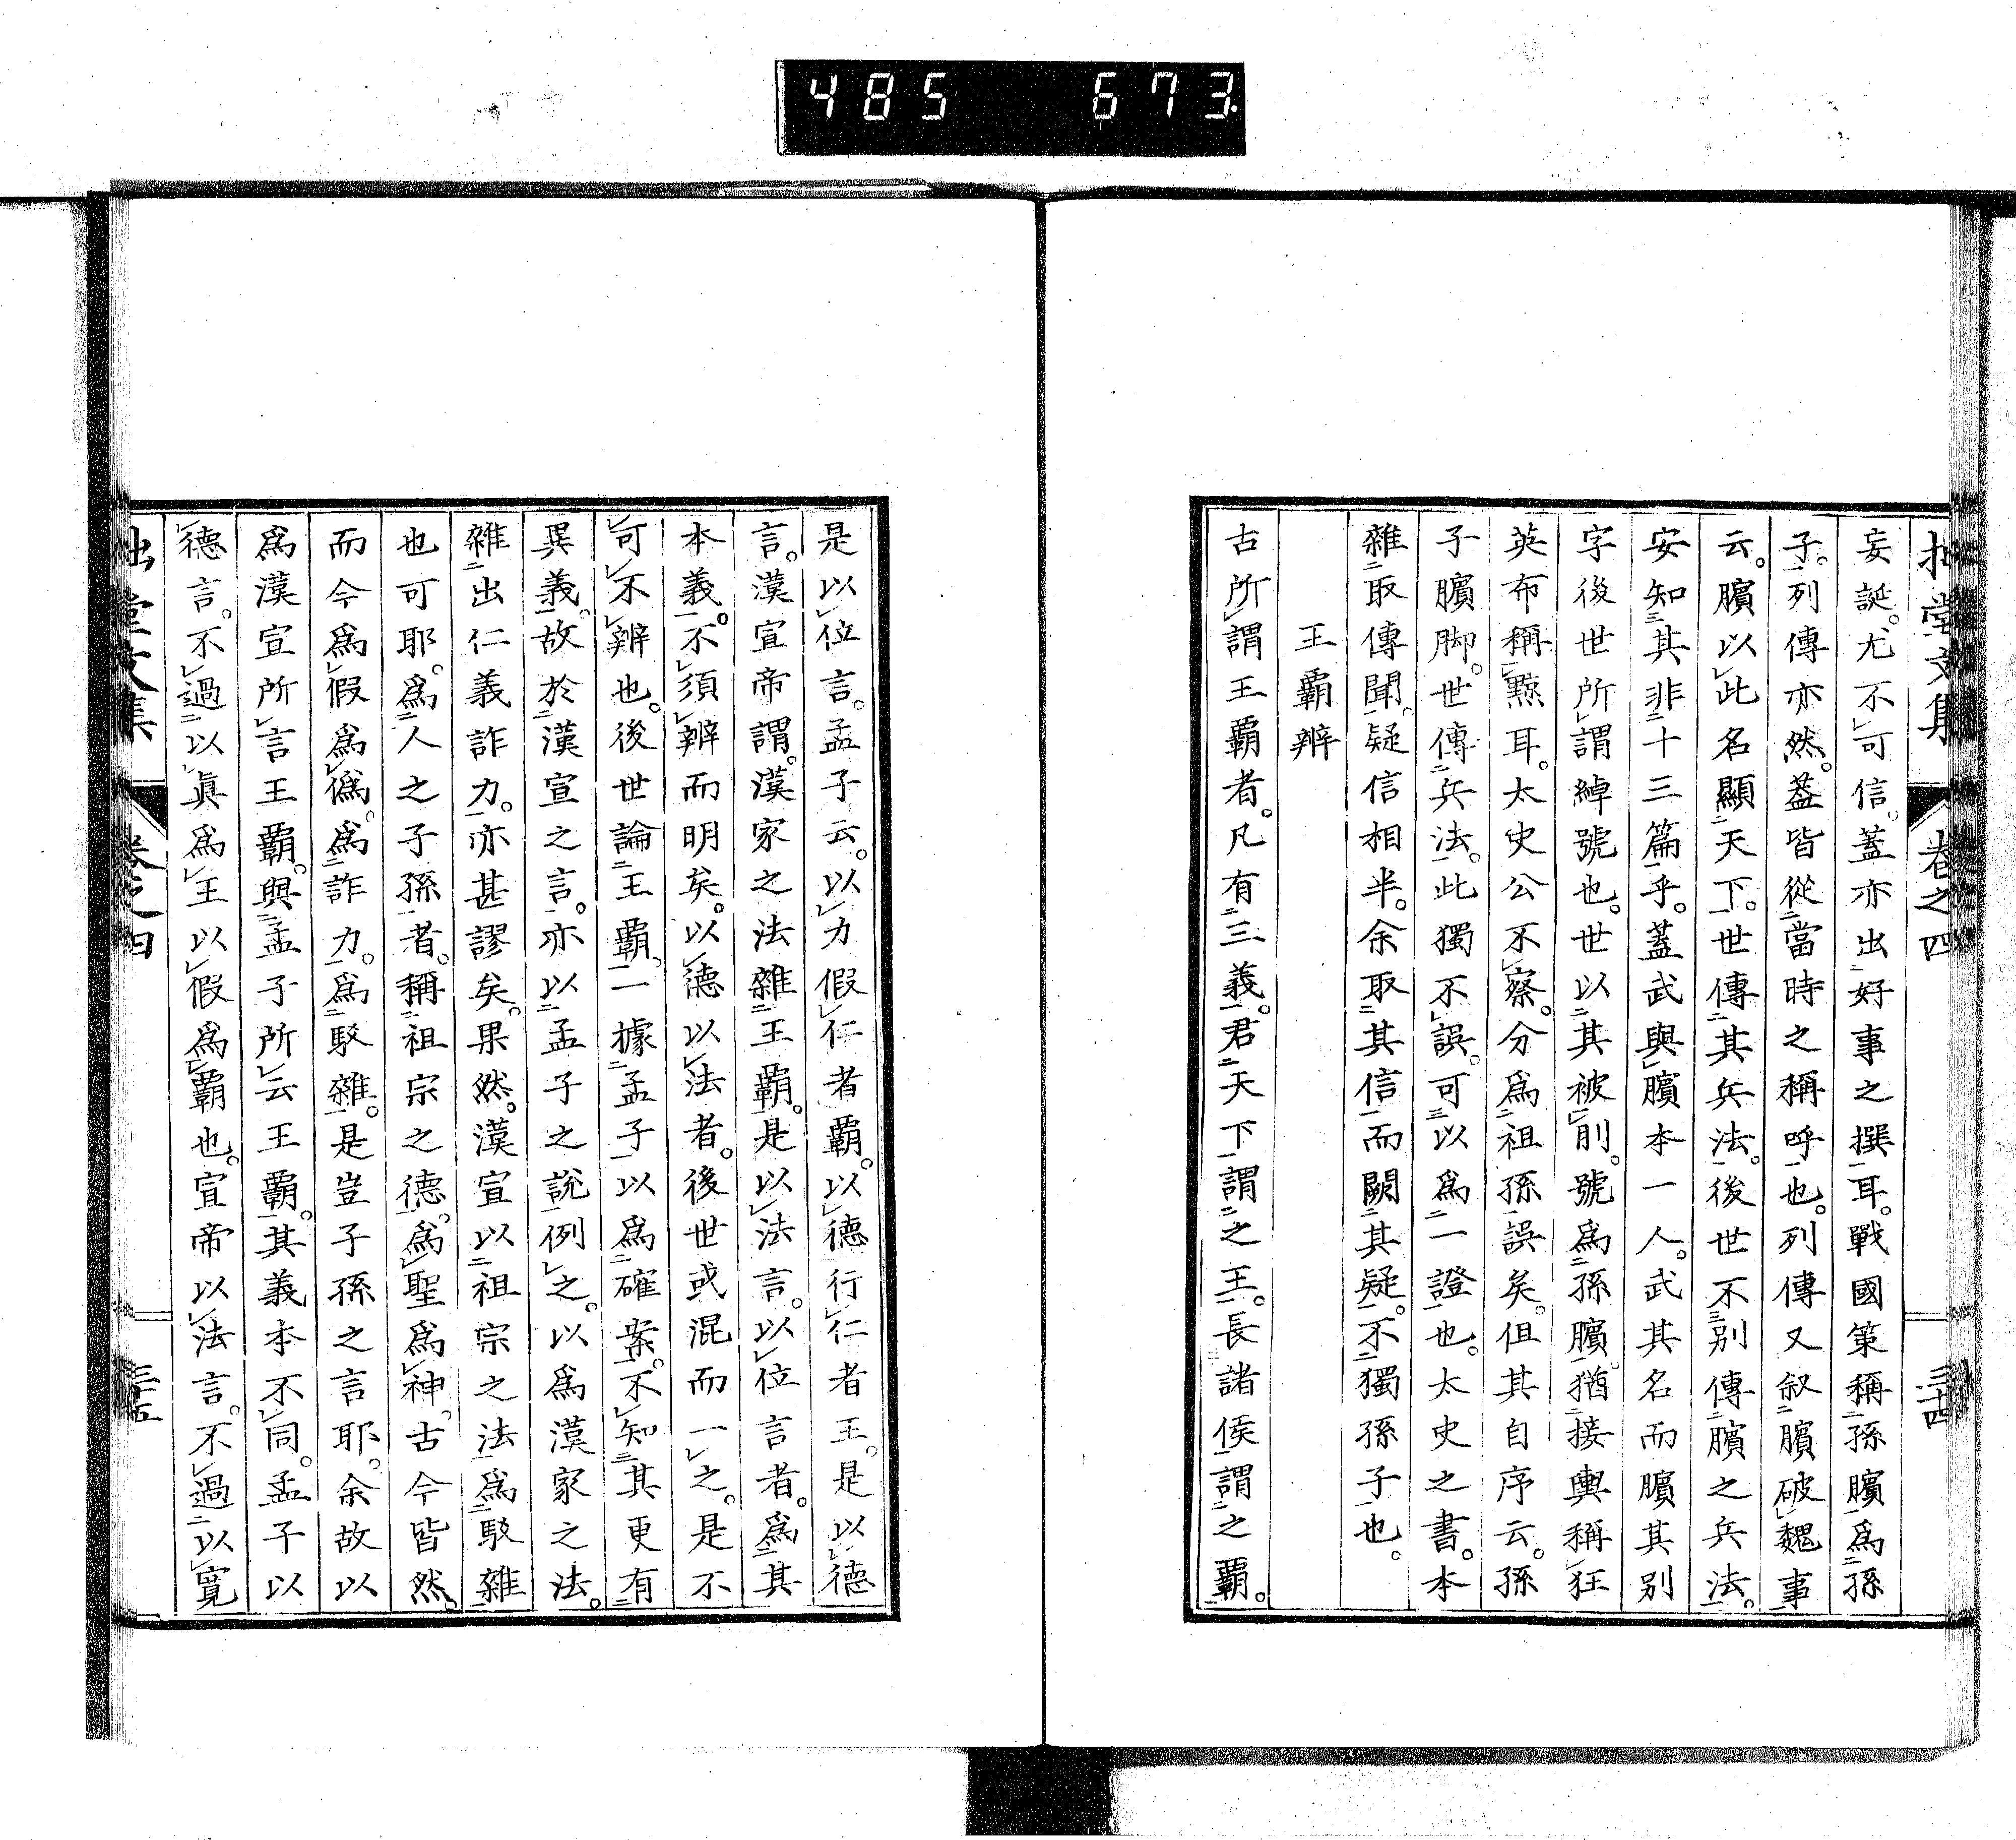 485 673.
拙堂文集 卷之四 三十四
妄誕。尤不可信。蓋亦出好事之撰耳。戰國策稱孫臏爲孫
子。列傳亦然。蓋皆從當時之稱呼也。列傳又叙臏破魏事
云。臏以此名顯天下。世傳其兵法。後世不別傳臏之兵法。
安知其非十三篇乎。蓋武與臏本一人。武其名而臏其別
字後世所謂綽號也。世以其被刖。號爲孫臏。猶接輿稱狂
英布稱黥耳。太史公不察。分爲祖孫誤矣。但其自序云。孫
子臏脚。世傳兵法。此獨不誤。可以爲一證也。太史之書。本
雜取傳聞。疑信相半。余取其信而闕其疑。不獨孫子也。
王霸辨
古所謂王霸者。凡有三義。君天下謂之王。長諸侯謂之霸。
是以位言。孟子云。以力假仁者霸。以德行仁者王。是以德
言。漢宣帝謂。漢家之法雜王霸。是以法言。以位言者。爲其
本義。不須辨而明矣。以德以法者。後世或混而一之。是不
可不辨也。後世論王霸。一據孟子以爲確案。不知其更有
異義。故於漢宣之言。亦以孟子之說例之。以爲漢家之法。
雜出仁義詐力。亦甚謬矣。果然。漢宣以祖宗之法爲駁雜
也可耶。爲人之子孫者。稱祖宗之德。爲聖爲神。古今皆然。
而今爲假爲僞。爲詐力。爲駁雜。是豈子孫之言耶。余故以
爲漢宣所言王霸。與孟子所云王霸。其義本不同。孟子以
德言。不過以眞爲王以假爲霸也。宣帝以法言。不過以寬
拙堂文集 卷之四 三十五